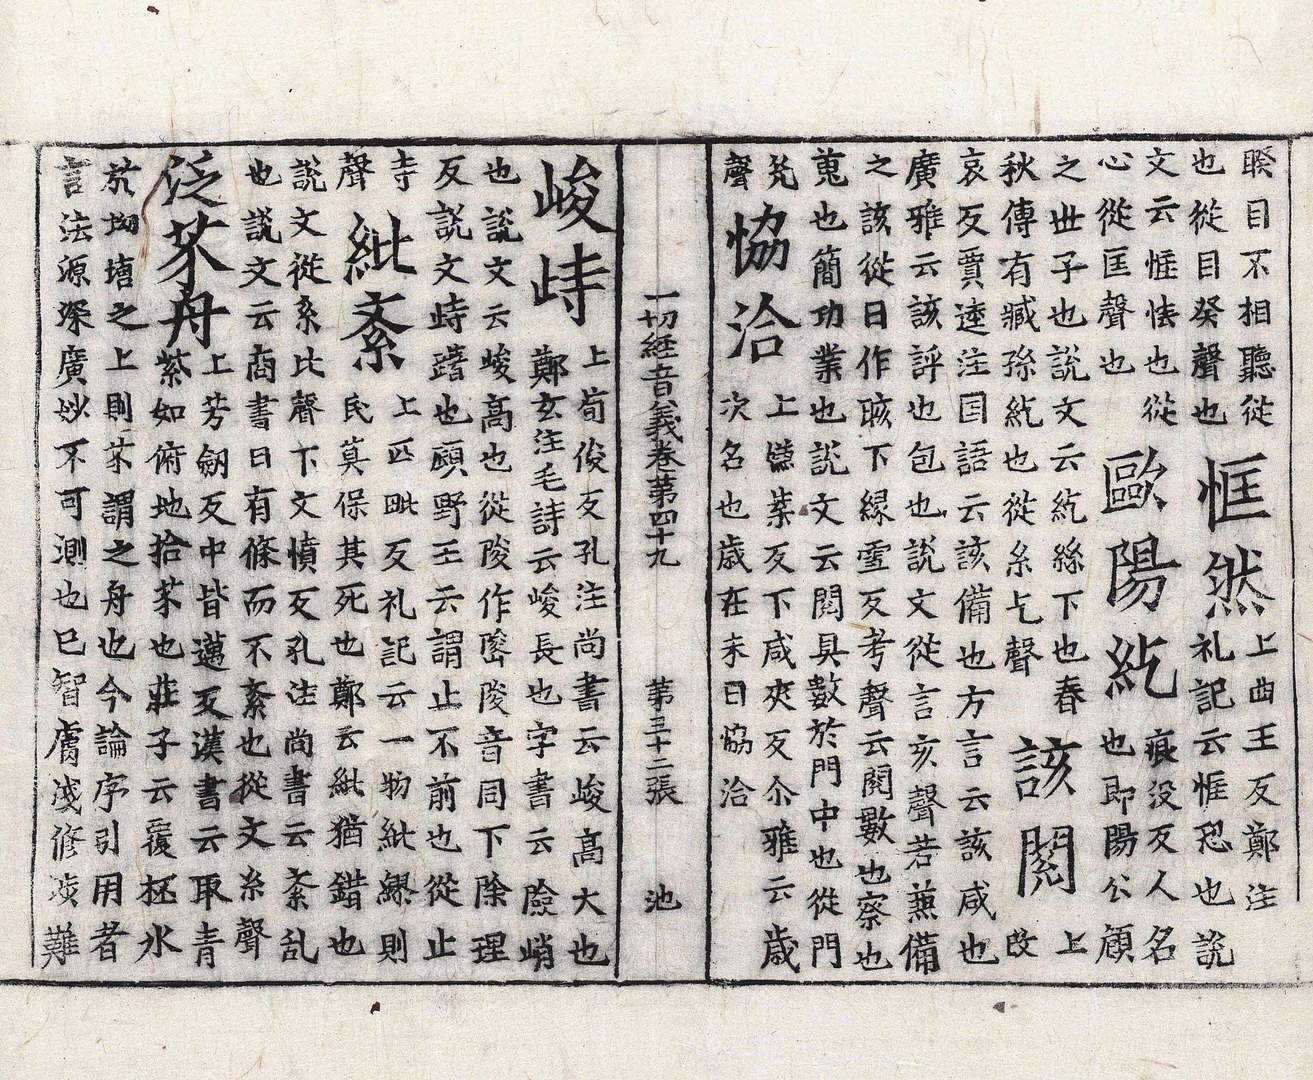 睽目不相聽從
也從目癸聲也
恇然
上曲王反鄭注
礼記云恇恐也說
文云恇怯也從
心從匡聲也
歐陽紇
痕没反人名
也即陽公頠
之世子也說文云紇絲下也春
秋傳有臧孫紇也從糸乞聲
該閱
上
改
哀反賈逵注囯語云該備也方言云該咸也
廣雅云該評也包也說文從言亥聲若兼備
之該從日作晐下緣雪反考聲云閱數也察也
蒐也簡功業也說文云閱具數於門中也從門
兊
聲
恊洽
上嫌葉反下咸夾反尒雅云歳
次名也歳在未曰恊洽
一切經音義卷第四十九 第三十二張 池
峻峙
上荀俊反孔注尚書云峻髙大也
鄭玄注毛詩云峻長也字書云險峭
也說文云峻髙也從陖作陖音同下除理
反說文峙躇也顧野王云謂止不前也從止
寺
聲
紕紊
上匹毗反礼記云一物紕繆則
民莫保其死也鄭云紕猶錯也
說文從糸比聲下文憤反孔注尚書云紊乱
也說文云商書曰有條而不紊也從文糸聲
泛芥舟
上芳劒反中皆邁反漢書云取青
紫如俯地拾芥也莊子云覆杯水
於坳塘之上則芥謂之舟也今論序引用者
言法源深廣妙不可測也已智膚淺修難